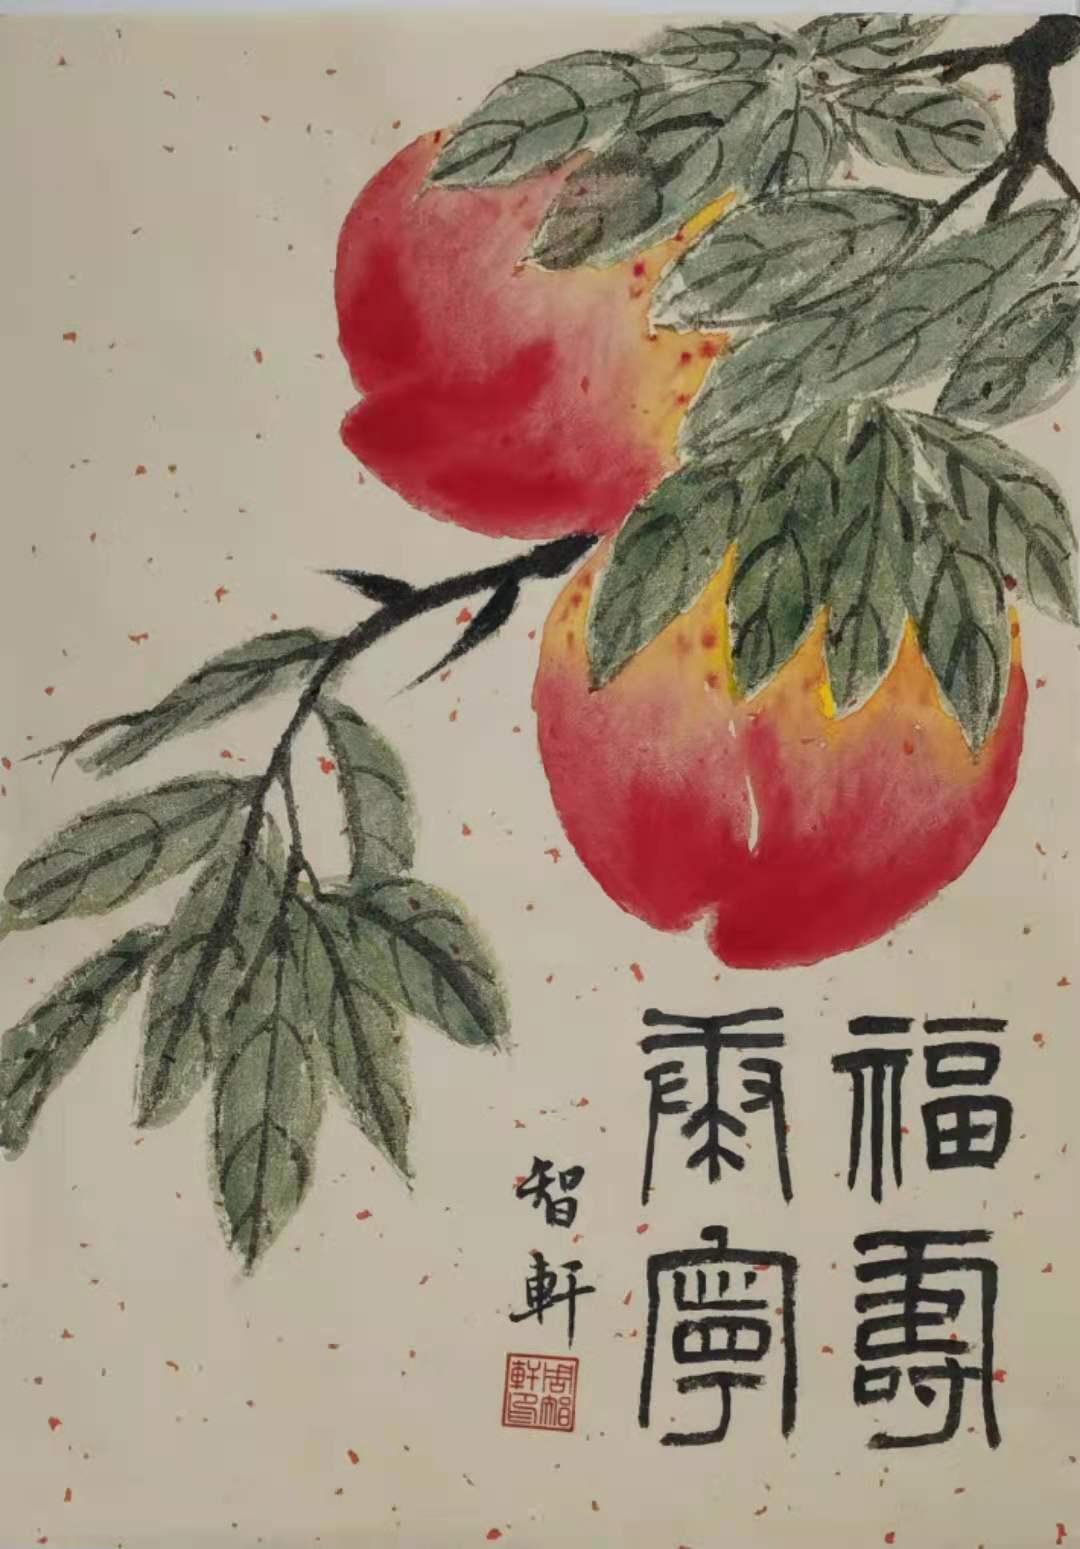 福壽
康寧
智軒
周智
軒印